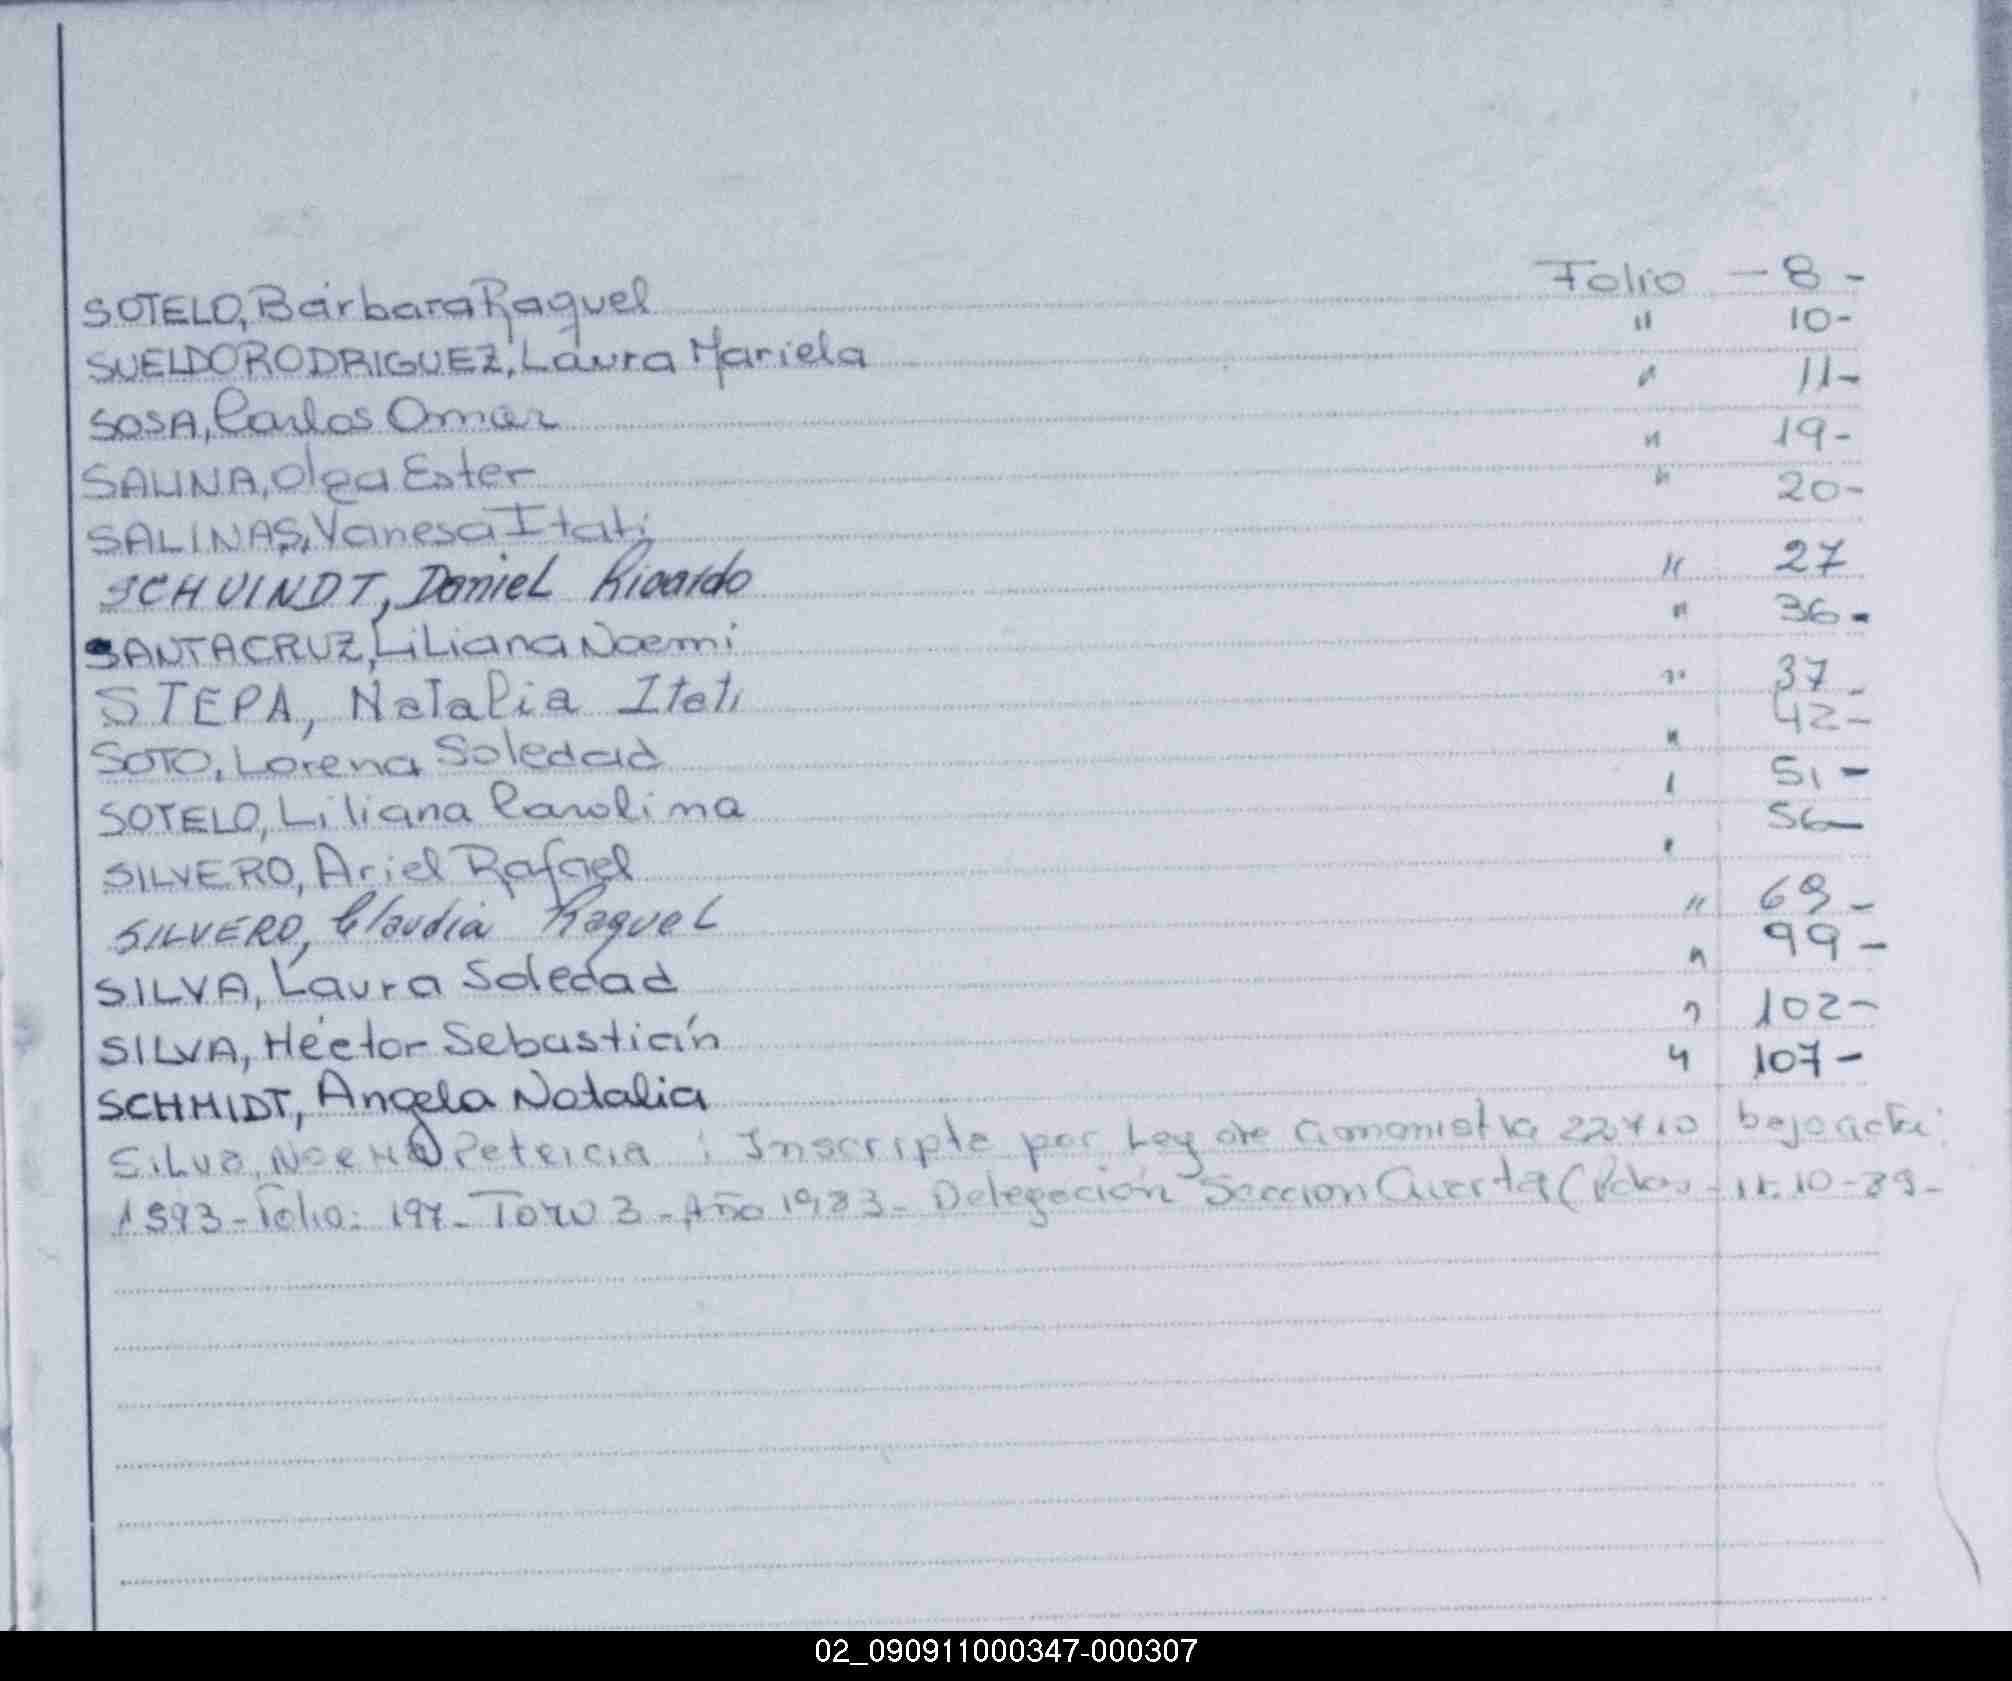 SOTELO, Bárbara Raquel Folio - 8 -
SUELDO RODRIGUEZ, Laura Mariela " 10-
SOSA, Carlos Omar " 11-
SALINA, Olga Ester " 19-
SALINAS, Vanesa Itati " 20-
SCHUINDT, Daniel Ricardo " 27
SANTACRUZ, Liliana Noemi " 36-
STEPA, Natalia Itati " 37-
SOTO, Lorena Soledad " 42-
SOTELO, Liliana Carolina " 51-
SILVERO, Ariel Rafael " 56-
SILVERO, Claudia Raquel " 69-
SILVA, Laura Soledad " 99-
SILVA, Héctor Sebastián " 102-
SCHMIDT, Angela Natalia " 107-
Silva, Patricia : Inscripta por Ley de 22410 bajo acta:
1593 - Folio: 197 - Tomo 3 - Año 1983 - Delegación Seccion Cuarta ( - 11-10-89-
02_090911000347-000307